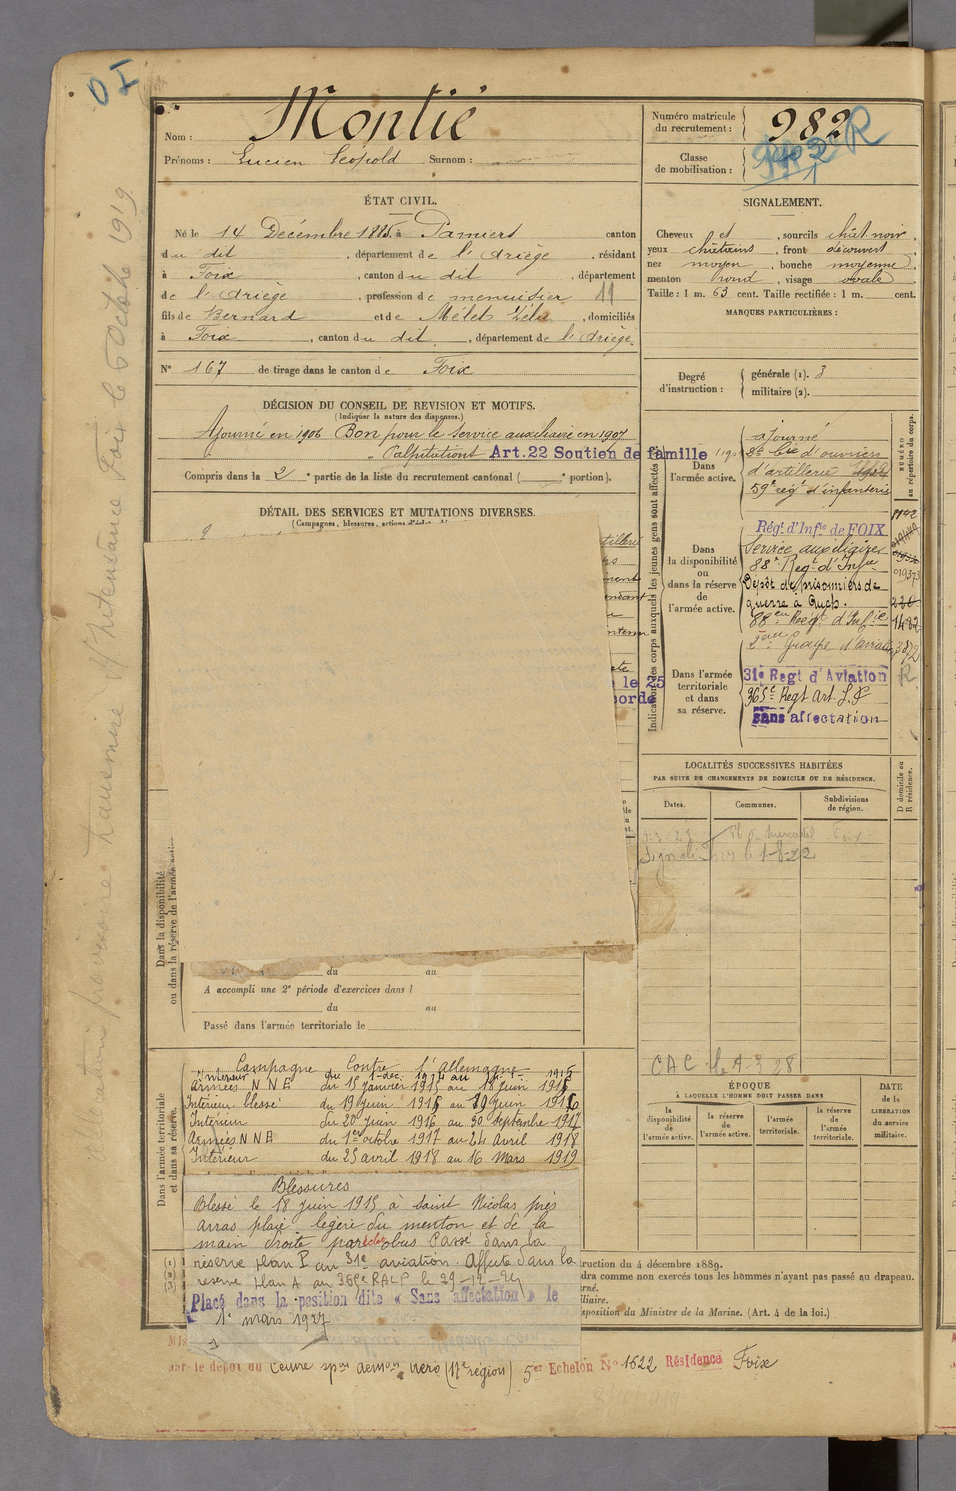 OI
Nom : Montié
Prénoms : Lucien Léopold Surnom :
Numéro matricule du recrutement : 982
R
Classe de mobilisation :
ÉTAT CIVIL.
Né le 14 Décembre 1885 à Pamiers canton
du dit , département de l'Ariège , résidant
à Foix , canton du dit , département
de l'Ariège , profession de menuisier 11
fils de Bernard et de Mélet Zélie , domiciliés
à Foix , canton du dit , département de l'Ariège.
N° 167 de tirage dans le canton de Foix
SIGNALEMENT.
Cheveux et , sourcils chât noir .
yeux châtains , front découvert
nez moyen , bouche moyenne ,
menton rond , visage ovale
Taille : 1 m. 63 cent. Taille rectifiée : 1 m. cent.
MARQUES PARTICULIÈRES :
Degré d'instruction :
générale (1). 3
militaire (2).
DÉCISION DU CONSEIL DE REVISION ET MOTIFS.
(Indiquer la nature des dispenses.)
Ajourné en 1906 Bon pour le Service auxiliaire en 1907
Palpitations Art.22 Soutien de famille
Compris dans la 2 e partie de la liste du recrutement cantonal ( e portion).
DÉTAIL DES SERVICES ET MUTATIONS DIVERSES.
Indication des corps auxquels les jeunes gens sont affectés
NUMÉRO au répertoire du corps.
Dans l'armée active.
ajourné
2e Cie d'ouvriers
d'artillerie
59e régt d'infanterie
Dans la disponibilité ou dans la réserve de l'armée active.
Régt d'Infie de FOIX
Service aux digérer
88e Régt d'Infie
Dépôt de prisonniers de
guerre à Auch.
88e Régt d'Infie
Dans l'armée territoriale et dans sa réserve.
2eme groupe d'aviation
31e Regt d'Aviation
365e Regt Art. L. P
Sans affectation
R
le 25
LOCALITÉS SUCCESSIVES HABITÉES
PAR SUITE DE CHANGEMENTS DE DOMICILE OU DE RÉSIDENCE.
Dates. Communes. Subdivisions de région.
D domicile ou R résidence.
Dans la disponibilité ou dans la réserve de l'armée active
du au
A accompli une 2e période d'exercices dans l
du au
Passé dans l'armée territoriale le
CAC le 4-3 28
Dans l'armée territoriale et dans sa réserve.
Campagne Contre l'Allemagne
Armées N N E du 15 janvier 1915 au 18 juin 1915
Intérieur blessé du 19 juin 1915 au 19 juin 1916
Intérieur du 20 juin 1916 au 30 septembre 1917
Armées N N E du 1er octobre 1917 au 24 Avril 1918
Intérieur du 25 avril 1918 au 16 Mars 1919
ÉPOQUE
À LAQUELLE L'HOMME DOIT PASSER DANS
la disponibilité de l'armée active.
la réserve de l'armée active.
l'armée territoriale.
la réserve de l'armée territoriale.
DATE de la LIBÉRATION du service militaire.
Blessures
Blessé le 18 juin 1915 à Saint Nicolas près
Arras plaie légère du menton et de la
main droite par éclat obus Passé dans la
réserve plan P au 31e aviation. Affecté dans la
reserve plan A au 365e RALP le 29-12-24
Placé dans la position dite « Sans affectation » le
1e mars 1927
(1)
(2)
(3)
ruction du 4 décembre 1889.
dra comme non exercés tous les hommes n'ayant pas passé au drapeau.
rné.
iliaire.
sposition du Ministre de la Marine. (Art. 4 de la loi.)
par le dépôt du Centre Aéro (17e région) 5er Echelon No 1622 Résidence Foix